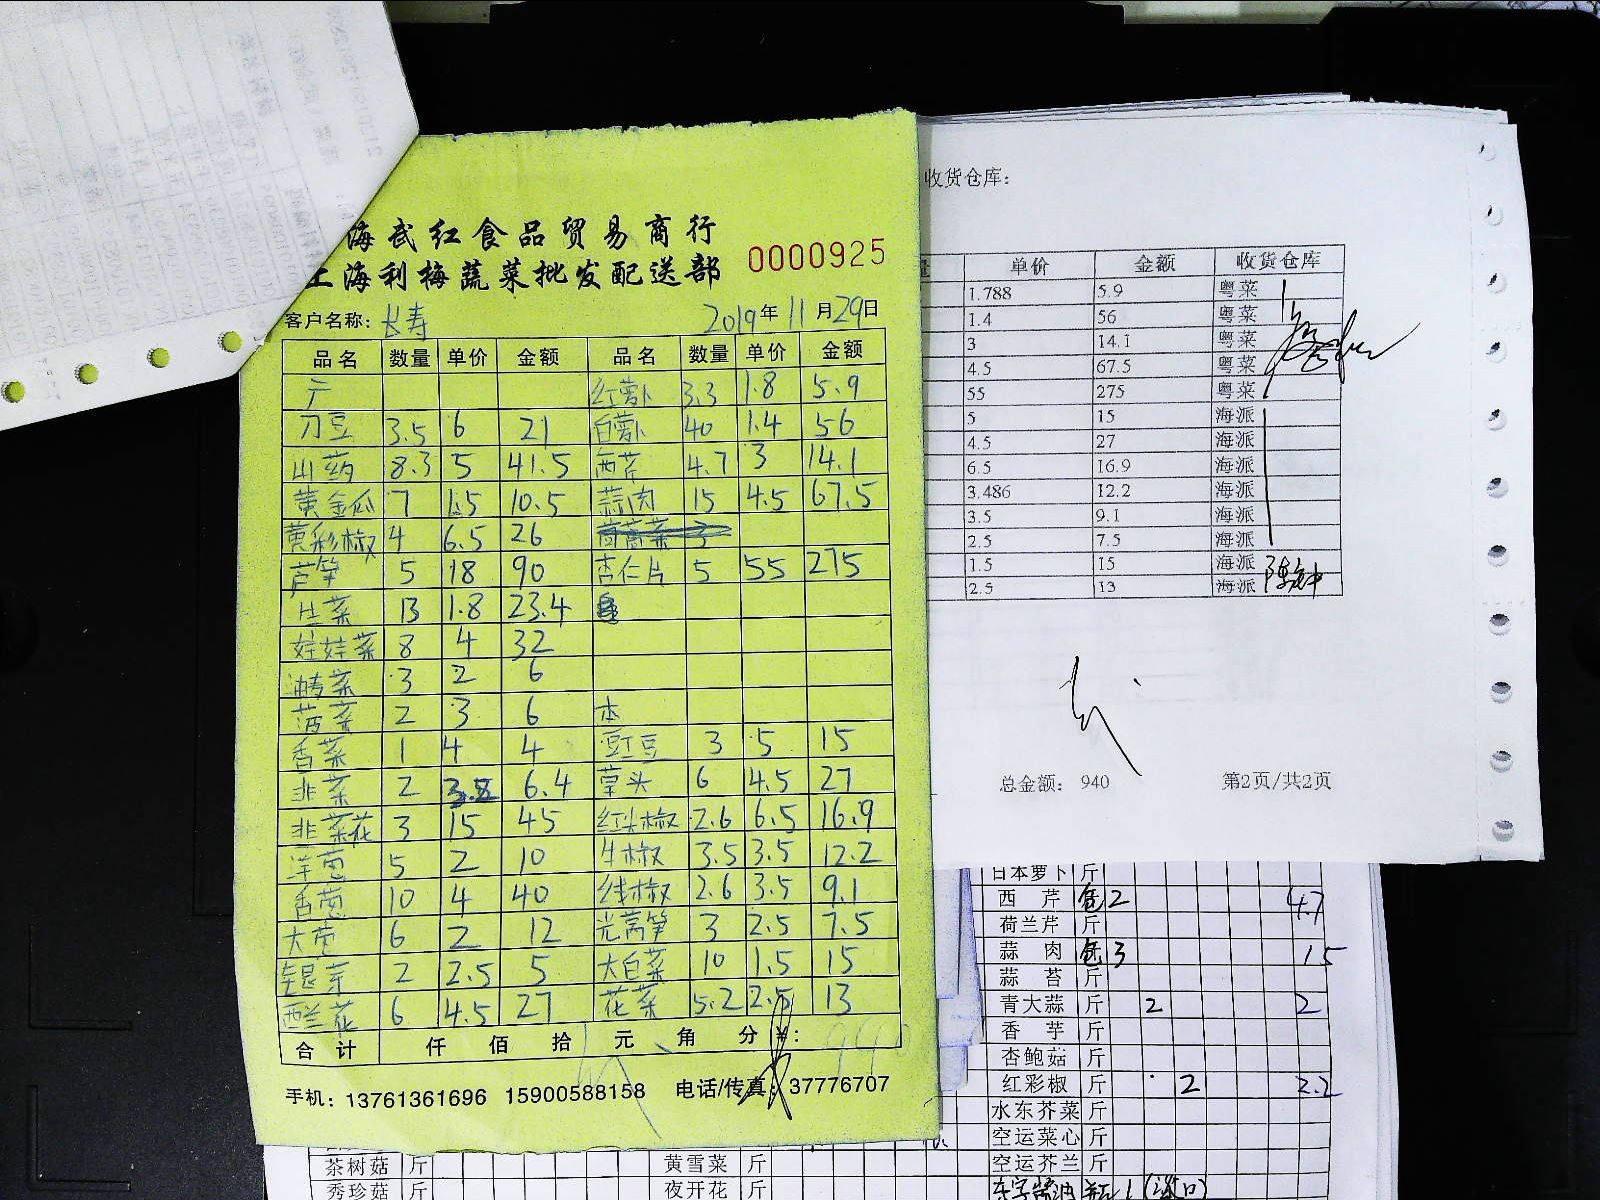 海武红食品贸易商行
上海利梅蔬菜批发配送部
0000925
客户名称：长寿 2019年11月29日
品名 数量 单价 金额 品名 数量 单价 金额
广 红萝卜 3.3 1.8 5.9
刀豆 3.5 6 21 白萝卜 40 1.4 56
山药 8.3 5 41.5 西芹 4.7 3 14.1
黄金瓜 7 1.5 10.5 蒜肉 15 4.5 67.5
黄彩椒 4 6.5 26
芦笋 5 18 90 杏仁片 5 55 275
生菜 13 1.8 23.4
娃娃菜 8 4 32
油麦菜 3 2 6
菠菜 2 3 6 本
香菜 1 4 4 豇豆 3 5 15
韭菜 2 6.4 草头 6 4.5 27
韭菜花 3 15 45 红尖椒 2.6 6.5 16.9
洋葱 5 2 10 牛椒 3.5 3.5 12.2
香葱 10 4 40 线椒 2.6 3.5 9.1
大葱 6 2 12 光莴笋 3 2.5 7.5
银芽 2 2.5 5 大白菜 10 1.5 15
西兰花 6 4.5 27 花菜 5.2 2.5 13
合计 仟 佰 拾 元 角 分 ¥: 940
手机：13761361696 15900588158 电话/传真：37776707
收货仓库：
单价 金额 收货仓库
1.788 5.9 粤菜
1.4 56 粤菜
3 14.1 粤菜
4.5 67.5 粤菜
55 275 粤菜
5 15 海派
4.5 27 海派
6.5 16.9 海派
3.486 12.2 海派
3.5 9.1 海派
2.5 7.5 海派
1.5 15 海派
2.5 13 海派
总金额： 940 第2页/共2页
日本萝卜 斤
西芹 包2 4.7
荷兰芹 斤
蒜肉 包3 15
蒜苔 斤
青大蒜 斤 2 2
香芋 斤
杏鲍菇 斤
红彩椒 斤 2 2.2
水东芥菜 斤
空运菜心 斤
茶树菇 斤 黄雪菜 斤 空运芥兰 斤
秀珍菇 斤 夜开花 斤